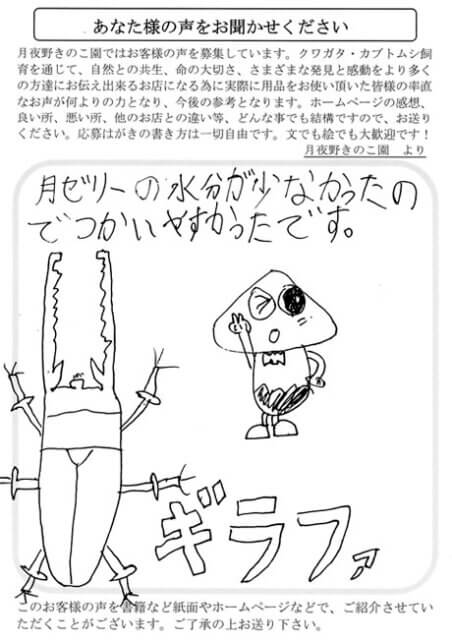 あなた様の声をお聞かせください
月夜野きのこ園ではお客様の声を募集しています。クワガタ・カブトムシ飼
育を通じて、自然との共生、命の大切さ、さまざまな発見と感動をより多く
の方達にお伝え出来るお店になる為に実際に用品をお使い頂いた皆様の率直
なお声が何よりの力となり、今後の参考となります。ホームページの感想、
良い所、悪い所、他のお店との違い等、どんな事でも結構ですので、お送り
ください。応募はがきの書き方は一切自由です。文でも絵でも大歓迎です！
月夜野きのこ園　より
月ゼリーの水分が少なかったの
でつかいやすかったです。
ギラファ
このお客様の声を書籍など紙面やホームページなどで、ご紹介させてい
ただくことがございます。ご了承の上お送り下さい。